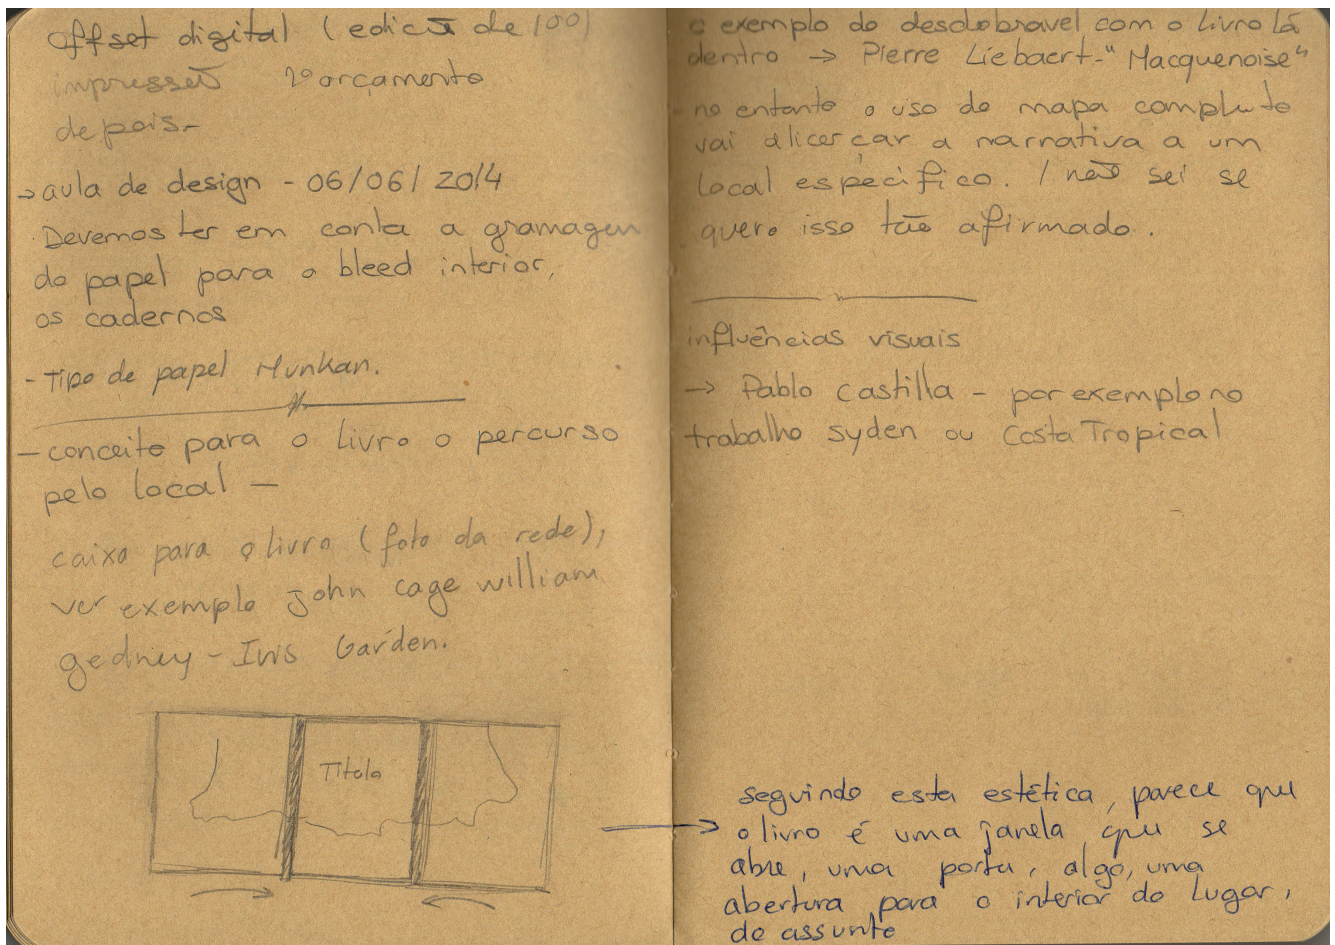 offset digital (edicão de 100)
impressão 2º orçamento
depois-
→ aula de design - 06/06/2014
Devemos ter em conta a gramagem
do papel para o bleed interior,
os cadernos
- Tipo de papel Munkan.
- conceito para o livro o percurso
pelo local -
caixa para o livro (foto da rede),
ver exemplo john cage william
gedney - Iris Garden.
Título
o exemplo do desdobravel com o livro lá
dentro → Pierre Liebaert - "Macquenoise"
- no entanto o uso do mapa completo
vai alicerçar a narrativa a um
local específico. / não sei se
quero isso tão afirmado.
influências visuais
→ Pablo Castilla - por exemplo no
trabalho Syden ou Costa Tropical
seguindo esta estética, parece que
o livro é uma janela que se
abre, uma porta, algo, uma
abertura para o interior do lugar,
do assunto